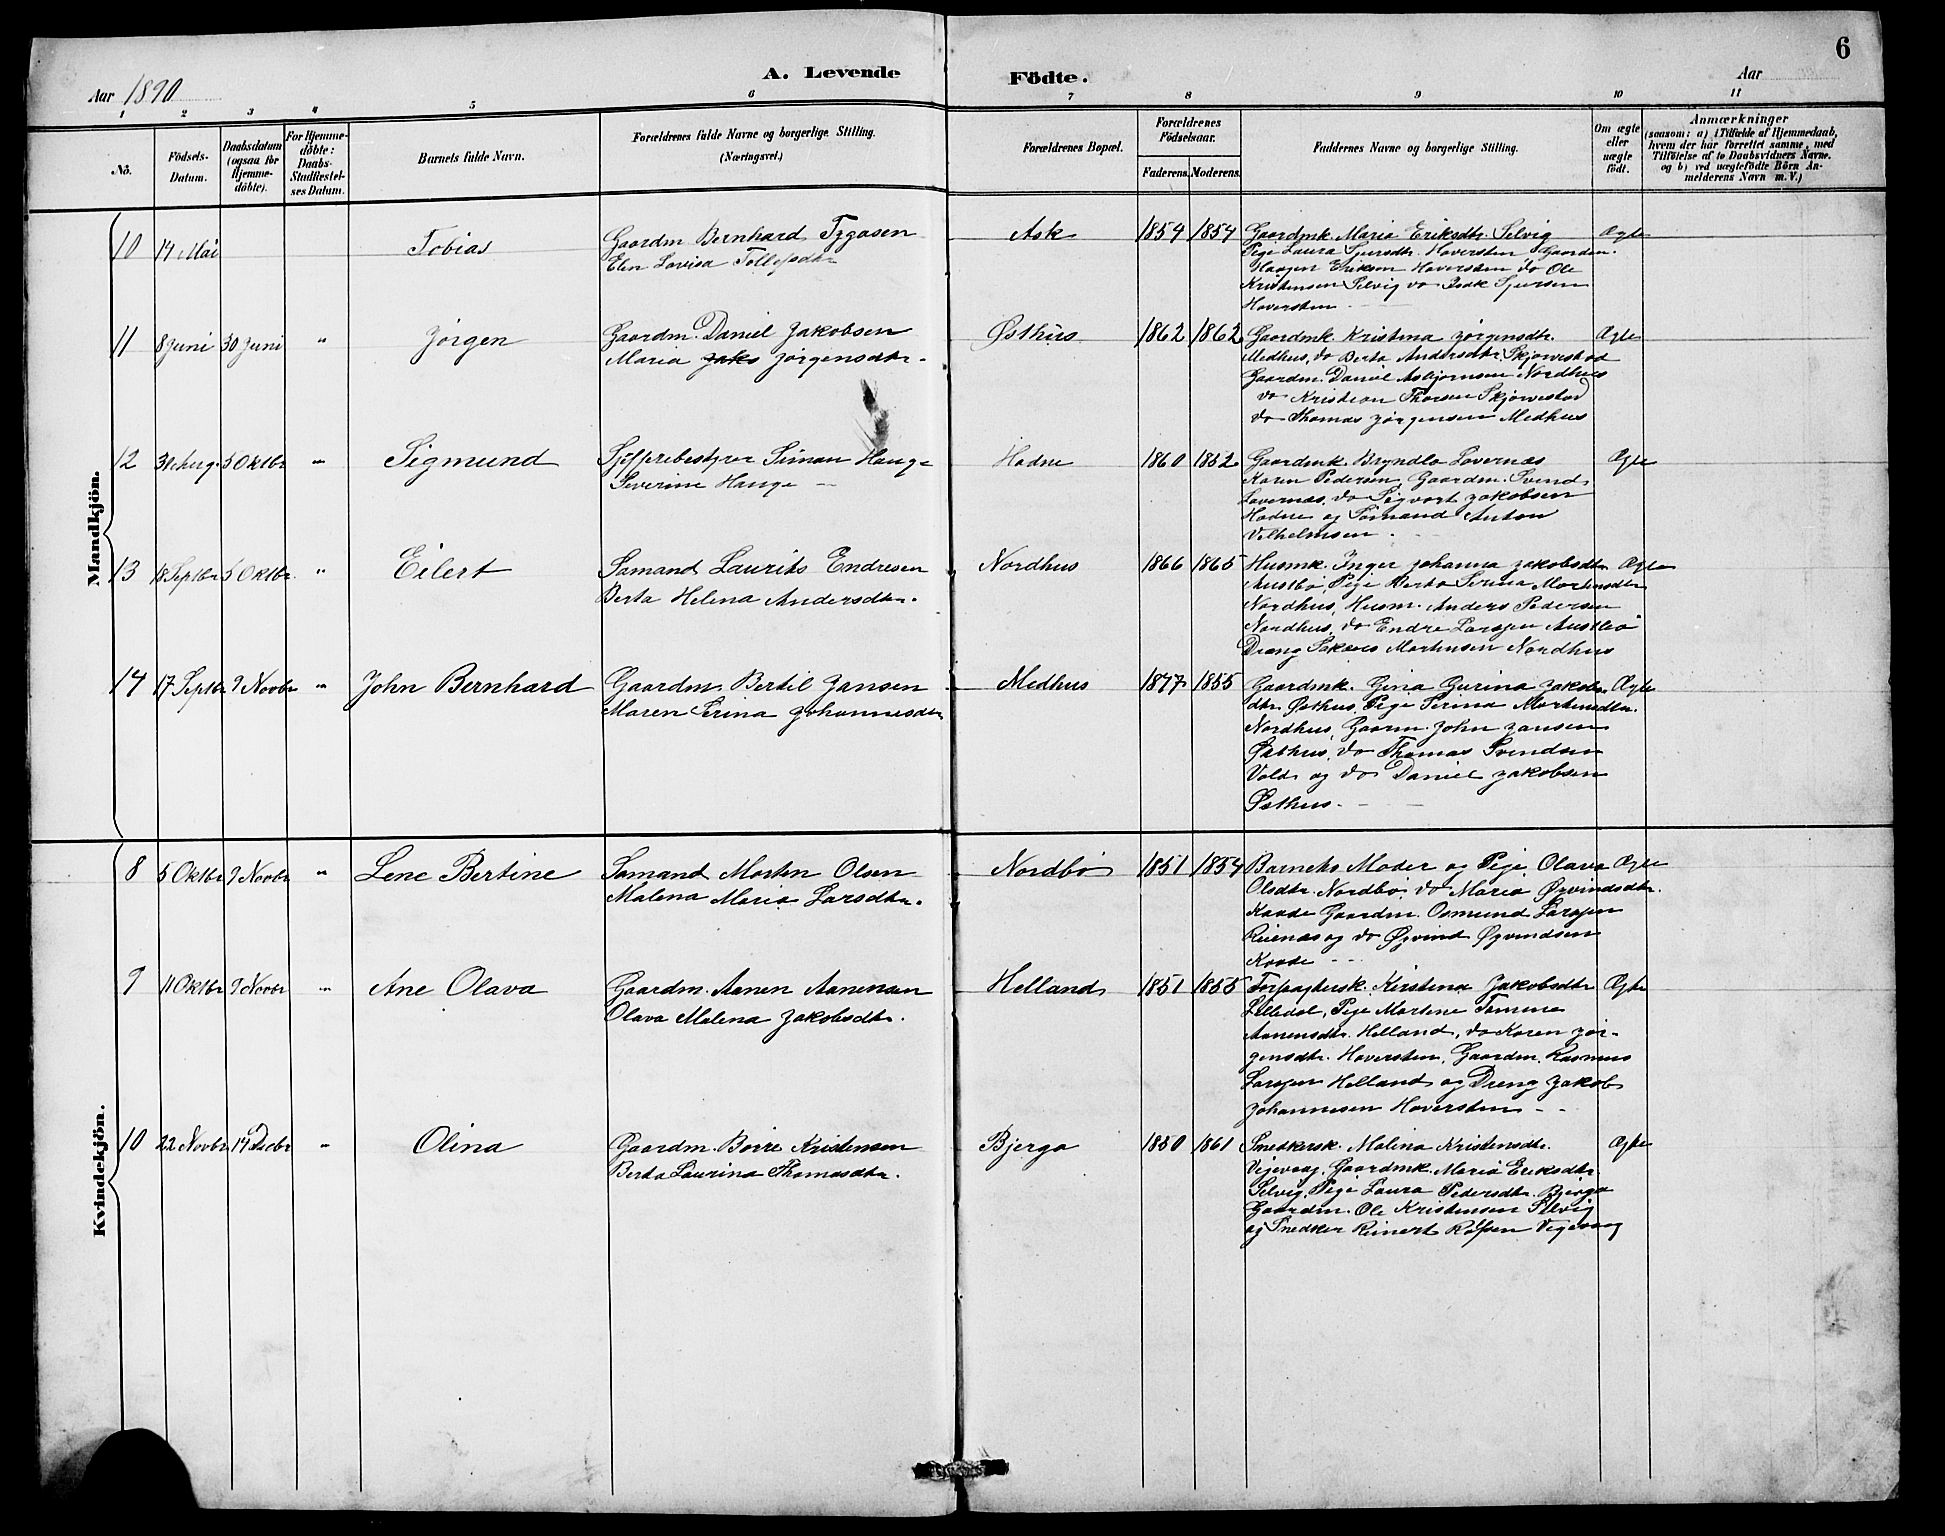 6
Aar 1890
A. Levende Födte.
Aar
1 2 3 4 5 6 7 8 9 10 11
No.
Födsels-
Datum.
Daabsdatum
(ogsaa for
Hjemme-
döbte).
For Hjemme-
döbte:
Daabs-
Stadfæstel-
ses Datum.
Barnets fulde Navn.
Forældrenes fulde Navne og borgerlige Stilling.
(Næringsvei.)
Forældrenes Bopæl.
Forældrenes
Födselsaar.
Faderens. Moderens.
Faddernes Navne og borgerlige Stilling.
Om ægte
eller
uægte
födt.
Anmærkninger
(saasom: a) i Tilfælde af Hjemmedaab,
hvem der har forrettet samme, med
Tilföielse af to Daabsvidners Navne.
og b) ved uægtefödte Börn An-
melderens Navn m. V.)
Mandkjön.
10 14 Mai Tobias
Gaardm. Bernhard
Elen Lovisa Tollefsdtr
Ask 1854 1854
Gaardmk. Maria Eriksdtr. Selvig
Pige Laura Sjursdtr. Haversten, Gaardm.
Haagen Eriksen Haversten, do Ole
Kristensen Selvig do Isak Sjursen
Haversten
Ægte
11 8 Juni 30 Juni " Jörgen
Gaardm. Daniel Jakobsen
Maria Jaks Jörgensdtr.
Østhus 1862 1862
Gaardmk. Kristina Jörgensdtr.
Medhus, do Berta Andersdtr. Skjørvestad
Gaardm. Daniel Asbjørnsen Nordhus
do Kristian Thorsen Skjørvestad
do Thomas Jørgensen Medhus
Ægte
12 31 Aug. 5 Oktbr " Sigmund
Simon Hauge
Severine Hauge
Hodne 1860 1852
Gaardmk. Bryndla Lovernæs
Karen Pedersen, Gaardm. Svend
Lovernæs, do Sigvart Jakobsen
Hodne og Sømand Anton
Vilhelmsen.
Ægte
13 18 Septbr 5 Oktbr. " Eilert
Sømand Laurits Endresen
Berta Helena Andersdtr.
Nordhus 1866 1865
Husmk. Inger Johanna Jakobsdtr.
Austbø, Pige Berta Serina Mortensdtr
Nordhus, Husm. Anders Pedersen
Nordhus, do Endre Larsen Austbø
Dreng Mortensen Nordhus
Ægte
14 17 Septbr 9 Novbr " John Bernhard
Gaardm. Bertil Jansen
Maren Serina Johannesdtr
Medhus 1855
Gaardmk. Gina Gurina Jakobs-
dtr. Østhus, Pige Serina Mortensdtr.
Nordhus, Gaarm. John Jansen
Østhus, do Thomas Svendsen
Vold og do Daniel Jakobsen
Østhus.
Ægte
Kvindekjön.
8 5 Oktbr 9 Novbr " Lene Bertine
Sømand Morten Olsen
Malena Maria Larsdtr.
Nordbø 1851 1854
Barnets Moder og Pige Olava
Olsdtr. Nordbø, do Maria Øyvindsdtr.
Kaade Gaardm. Osmund Larsen
Reienæs og do Øyvind Øyvindsen
Kaade
Ægte
9 11 Oktbr 9 Novbr " Ane Olava
Gaardm. Aanen Aanensen
Olava Malena Jakobsdtr.
Helland 1851 1855
Forpagtersk. Kirstina Jakobsdtr
Lilledal, Pige Martine Tomine
Aanensdtr. Helland, do Karen Jør-
gensdtr. Haversten, Gaardm. Rasmus
Larsen Helland og Dreng Jakob
Johannesen Haversten
Ægte
10 22 Novbr 14 Decbr " Olina
Gaardm. Børre Kristensen
Berta Laurina Thomasdtr.
Bjerga 1850 1861
Snedkersk. Malina Kristensdtr.
Vigevaag, Gaardmk. Maria Eriksdtr
Selvig, Pige Laura Pedersdtr. Bjerga
Gaardm. Ole Kristensen Selvig
og Snedker Reinert Vigevaag
Ægte